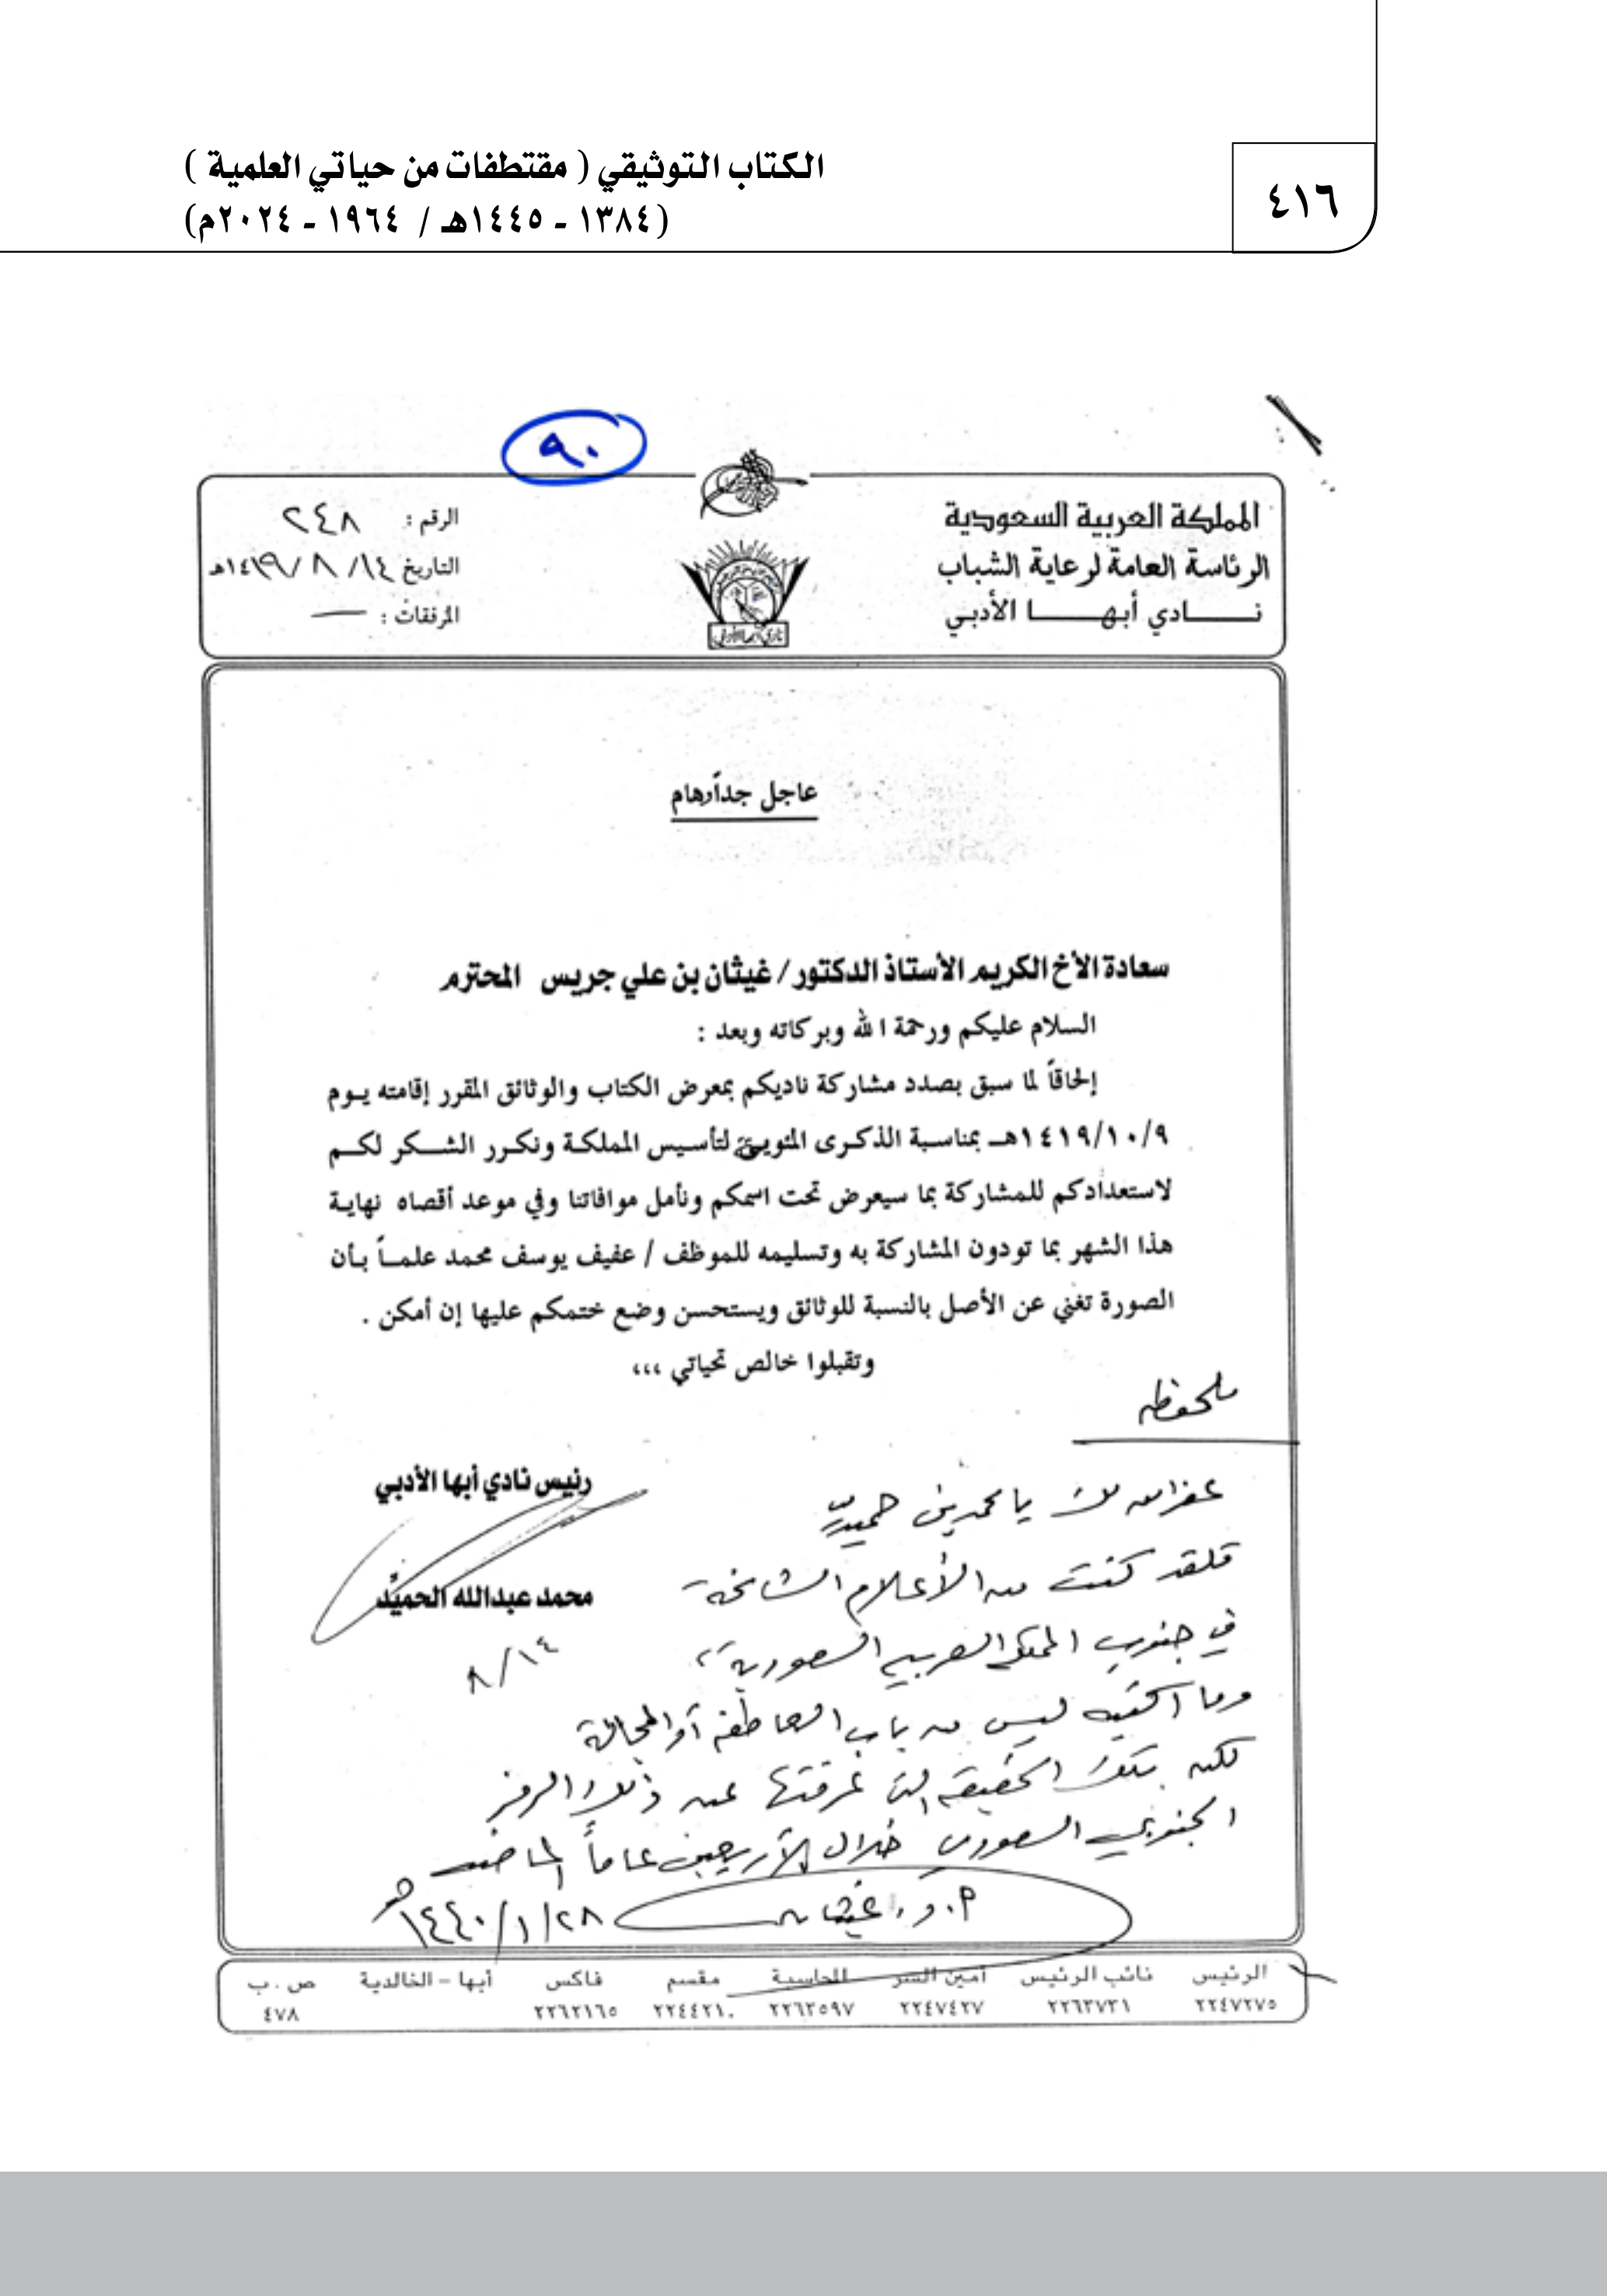 ٤١٦
الكتاب التوثيقي ( مقتطفات من حياتي العلمية )
(١٣٨٤ - ١٤٤٥هـ / ١٩٦٤ - ٢٠٢٤م)
٩٠
المملكة العربية السعودية
الرئاسة العامة لرعاية الشباب
نـــادي أبهـــا الأدبي
نادي أبها الأدبي
الرقم : ٢٤٨
التاريخ ١٤١٩/٨/١٤هـ
المرفقات : —
عاجل جداً وهام
سعادة الأخ الكريم الأستاذ الدكتور/ غيثان بن علي جريس المحترم
السلام عليكم ورحمة الله وبركاته وبعد :
إلحاقاً لما سبق بصدد مشاركة ناديكم بمعرض الكتاب والوثائق المقرر إقامته يـوم
١٤١٩/١٠/٩هـ بمناسبة الذكرى المئوية لتأسيس المملكة ونكرر الشـكر لكـم
لاستعدادكم للمشاركة بما سيعرض تحت اسمكم ونأمل موافاتنا وفي موعد أقصاه نهاية
هذا الشهر بما تودون المشاركة به وتسليمه للموظف / عفيف يوسف محمد علمـاً بـأن
الصورة تغني عن الأصل بالنسبة للوثائق ويستحسن وضع ختمكم عليها إن أمكن .
وتقبلوا خالص تحياتي ،،،
رئيس نادي أبها الأدبي
محمد عبدالله الحميِّد
٨/١٤
ملحوظه
غفر الله لك يا محمد بن حميد
فلقد كنت من الأعلام الشامخة
في جنوب المملكة العربية السعودية،
وما اكتبه ليس من باب العاطفة أو المجاملة
لكنه بتلك الحقيقة التي عرفتها عن ذلك الرمز
الجنوبي السعودي خلال الأربعين عاماً الماضية
أ.د. غيثان
١٤٤٠/١/٢٨هـ
الرئيس نائب الرئيس أمين السر المحاسبة مقسم فاكس أبها - الخالدية ص . ب
٢٢٤٧٢٧٥ ٢٢٦٣٧٣١ ٢٢٤٧٤٢٧ ٢٢٦٣٥٩٧ ٢٢٤٤٢١٠ ٢٢٦٢١٦٥ ٤٧٨